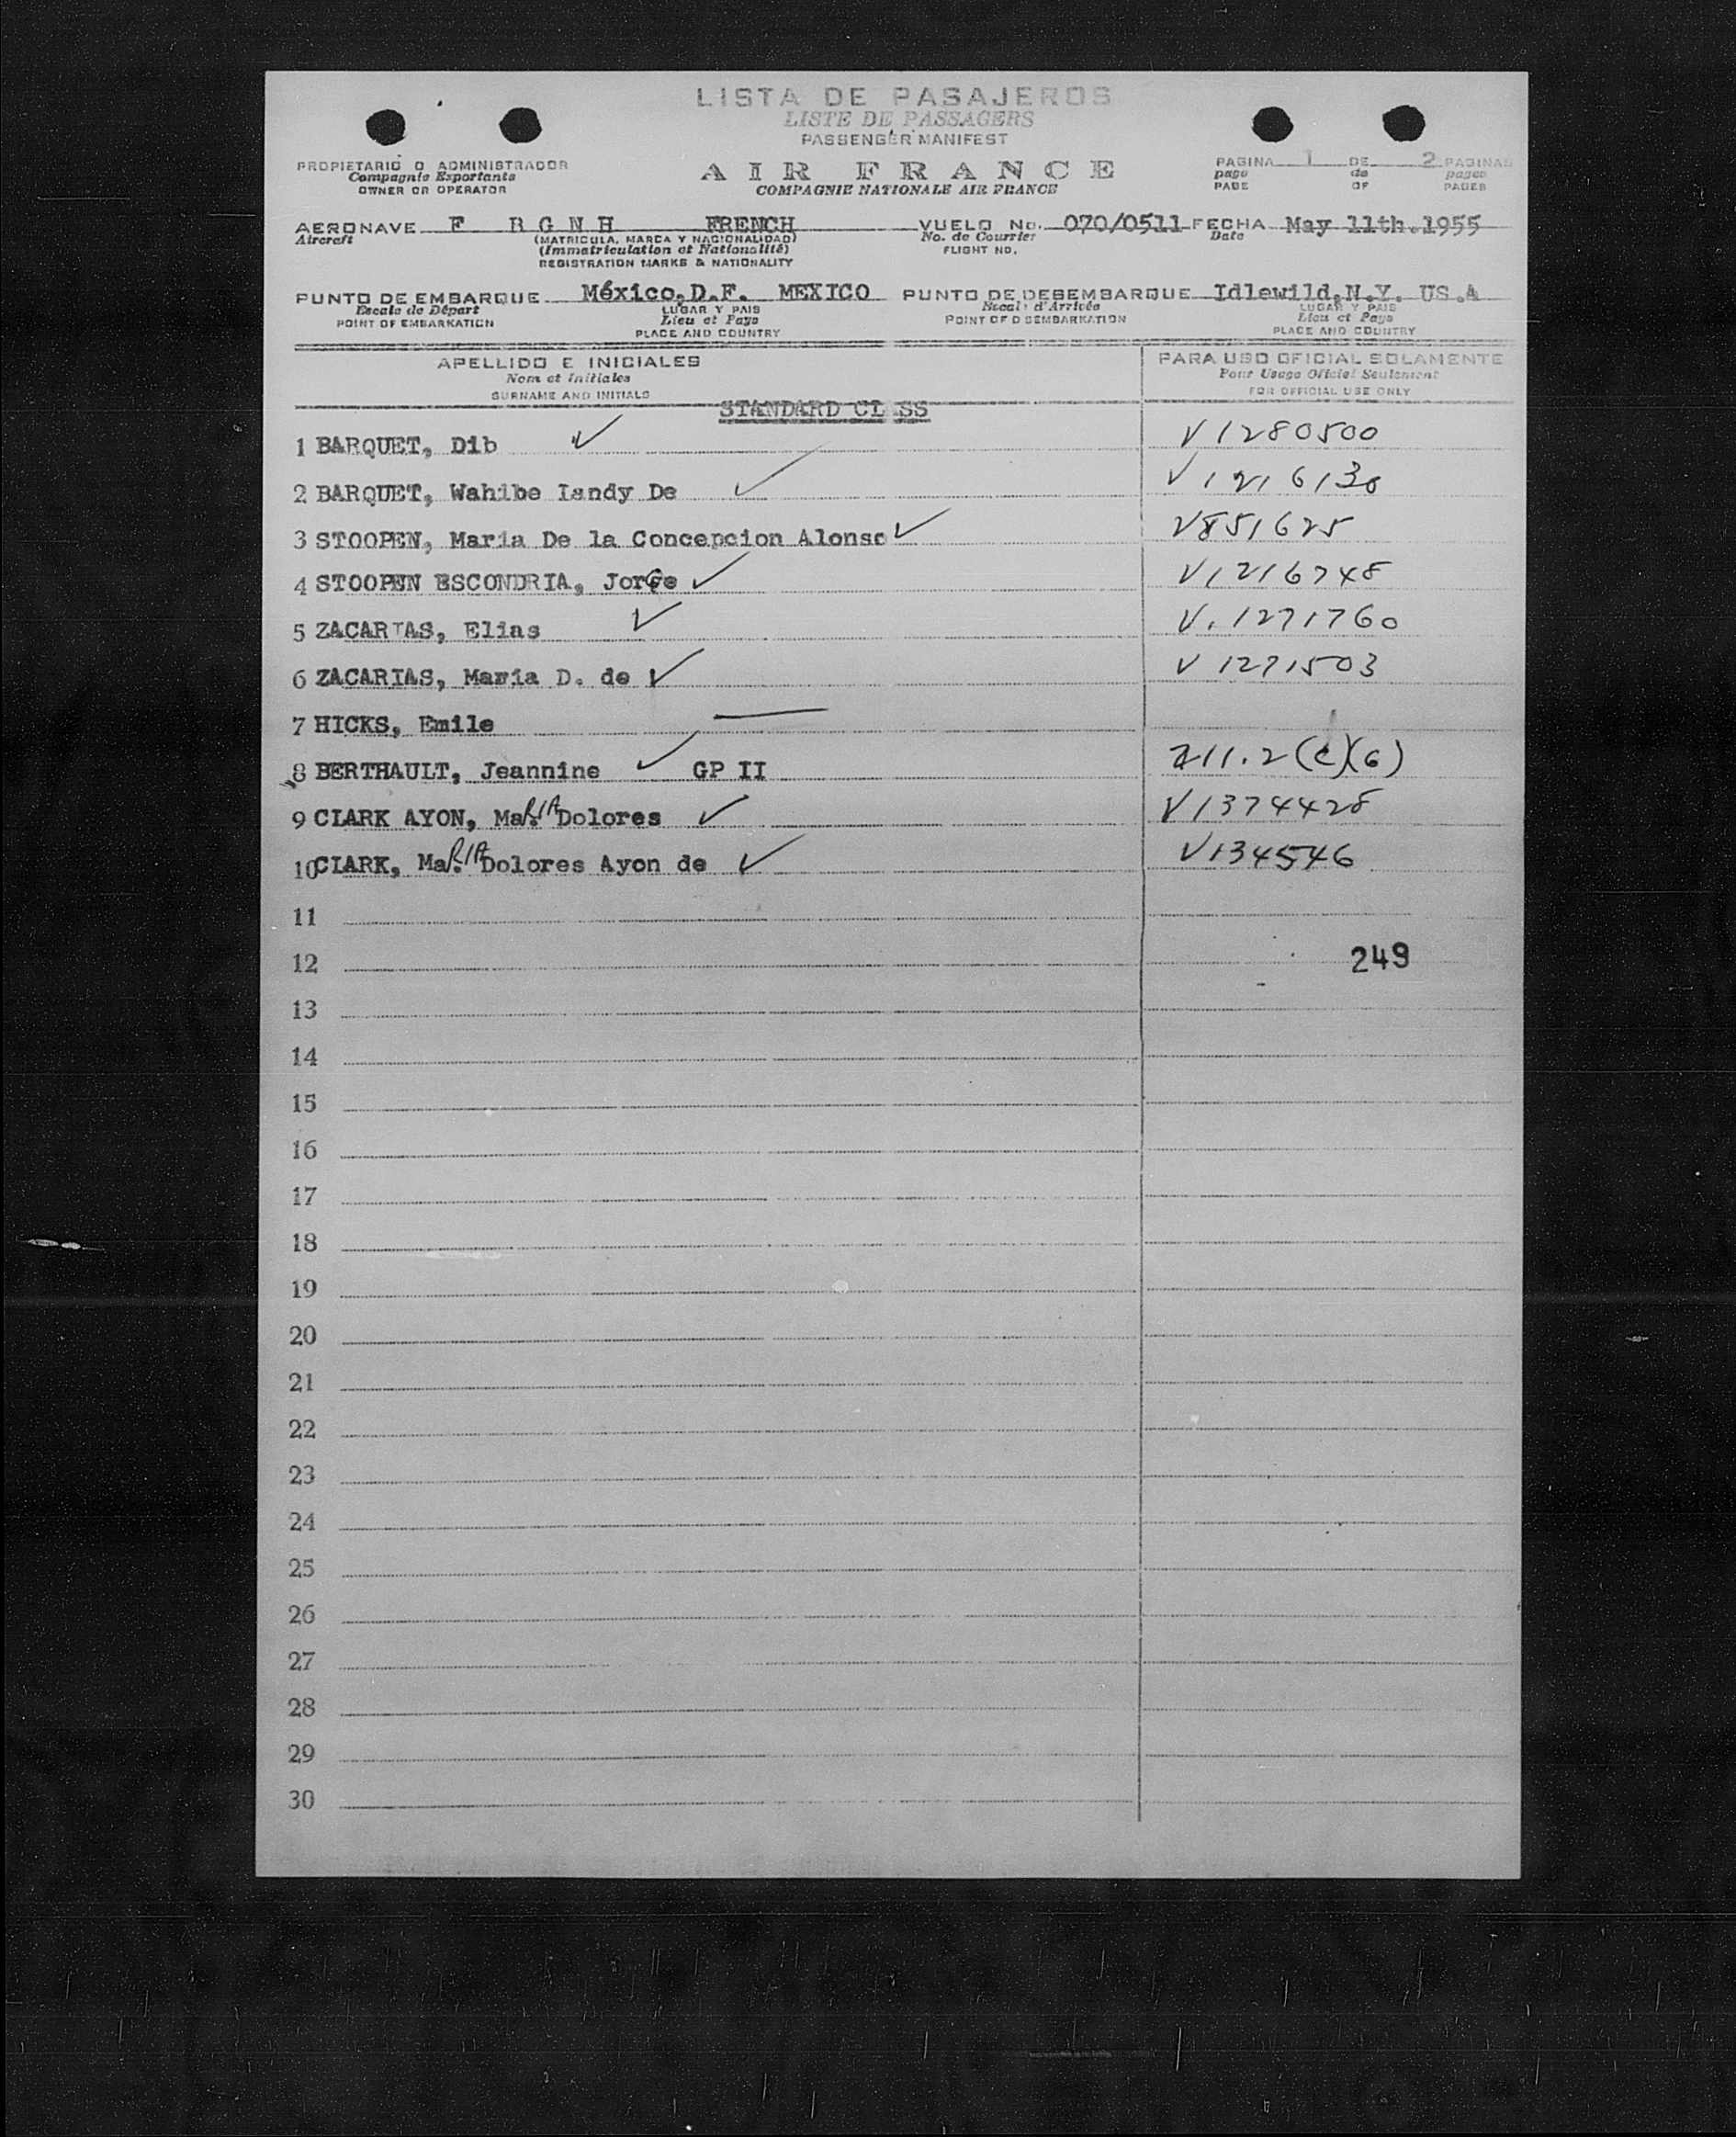 LISTA DE PASAJEROS
LISTE DE PASSAGERS
PASSENGER MANIFEST
PROPIETARIO O ADMINISTRADOR
Compagnie Exportante
OWNER OR OPERATOR
AIR FRANCE
COMPAGNIE NATIONALE AIR FRANCE
PAGINA 1 DE 2 PAGINAS
page de pages
PAGE OF PAGES
AERONAVE F BGNH FRENCH VUELO No. 070/0511 FECHA May 11th.1955
Aircraft (MATRICULA, MARCA Y NACIONALIDAD) No. de Courrier Date
(Immatriculation et Nationalité) FLIGHT NO.
REGISTRATION MARKS & NATIONALITY
PUNTO DE EMBARQUE México,D.F. MEXICO PUNTO DE DESEMBARQUE Idlewild,N.Y. US.A
Escale de Départ LUGAR Y PAIS Escale d'Arrivée LUGAR Y PAIS
POINT OF EMBARKATION Lieu et Pays POINT OF DISEMBARKATION Lieu et Pays
PLACE AND COUNTRY PLACE AND COUNTRY
APELLIDO E INICIALES PARA USO OFICIAL SOLAMENTE
Nom et Initiales Pour Usage Officiel Seulement
SURNAME AND INITIALS FOR OFFICIAL USE ONLY
STANDARD CL SS
1 BARQUET, Dib ✓ V1280500
2 BARQUET, Wahibe Iandy De ✓ V1216130
3 STOOPEN, Maria De la Concepcion Alonso ✓ V851625
4 STOOPEN ESCONDRIA, JorGe ✓ V1216748
5 ZACARIAS, Elias ✓ V.1271760
6 ZACARIAS, Maria D. de ✓ V1271503
7 HICKS, Emile —
8 BERTHAULT, Jeannine ✓ GP II 211.2(c)(6)
9 CLARK AYON, MaRIA Dolores ✓ V1374428
10 CLARK, MaRIA Dolores Ayon de ✓ V134546
11
12 249
13
14
15
16
17
18
19
20
21
22
23
24
25
26
27
28
29
30